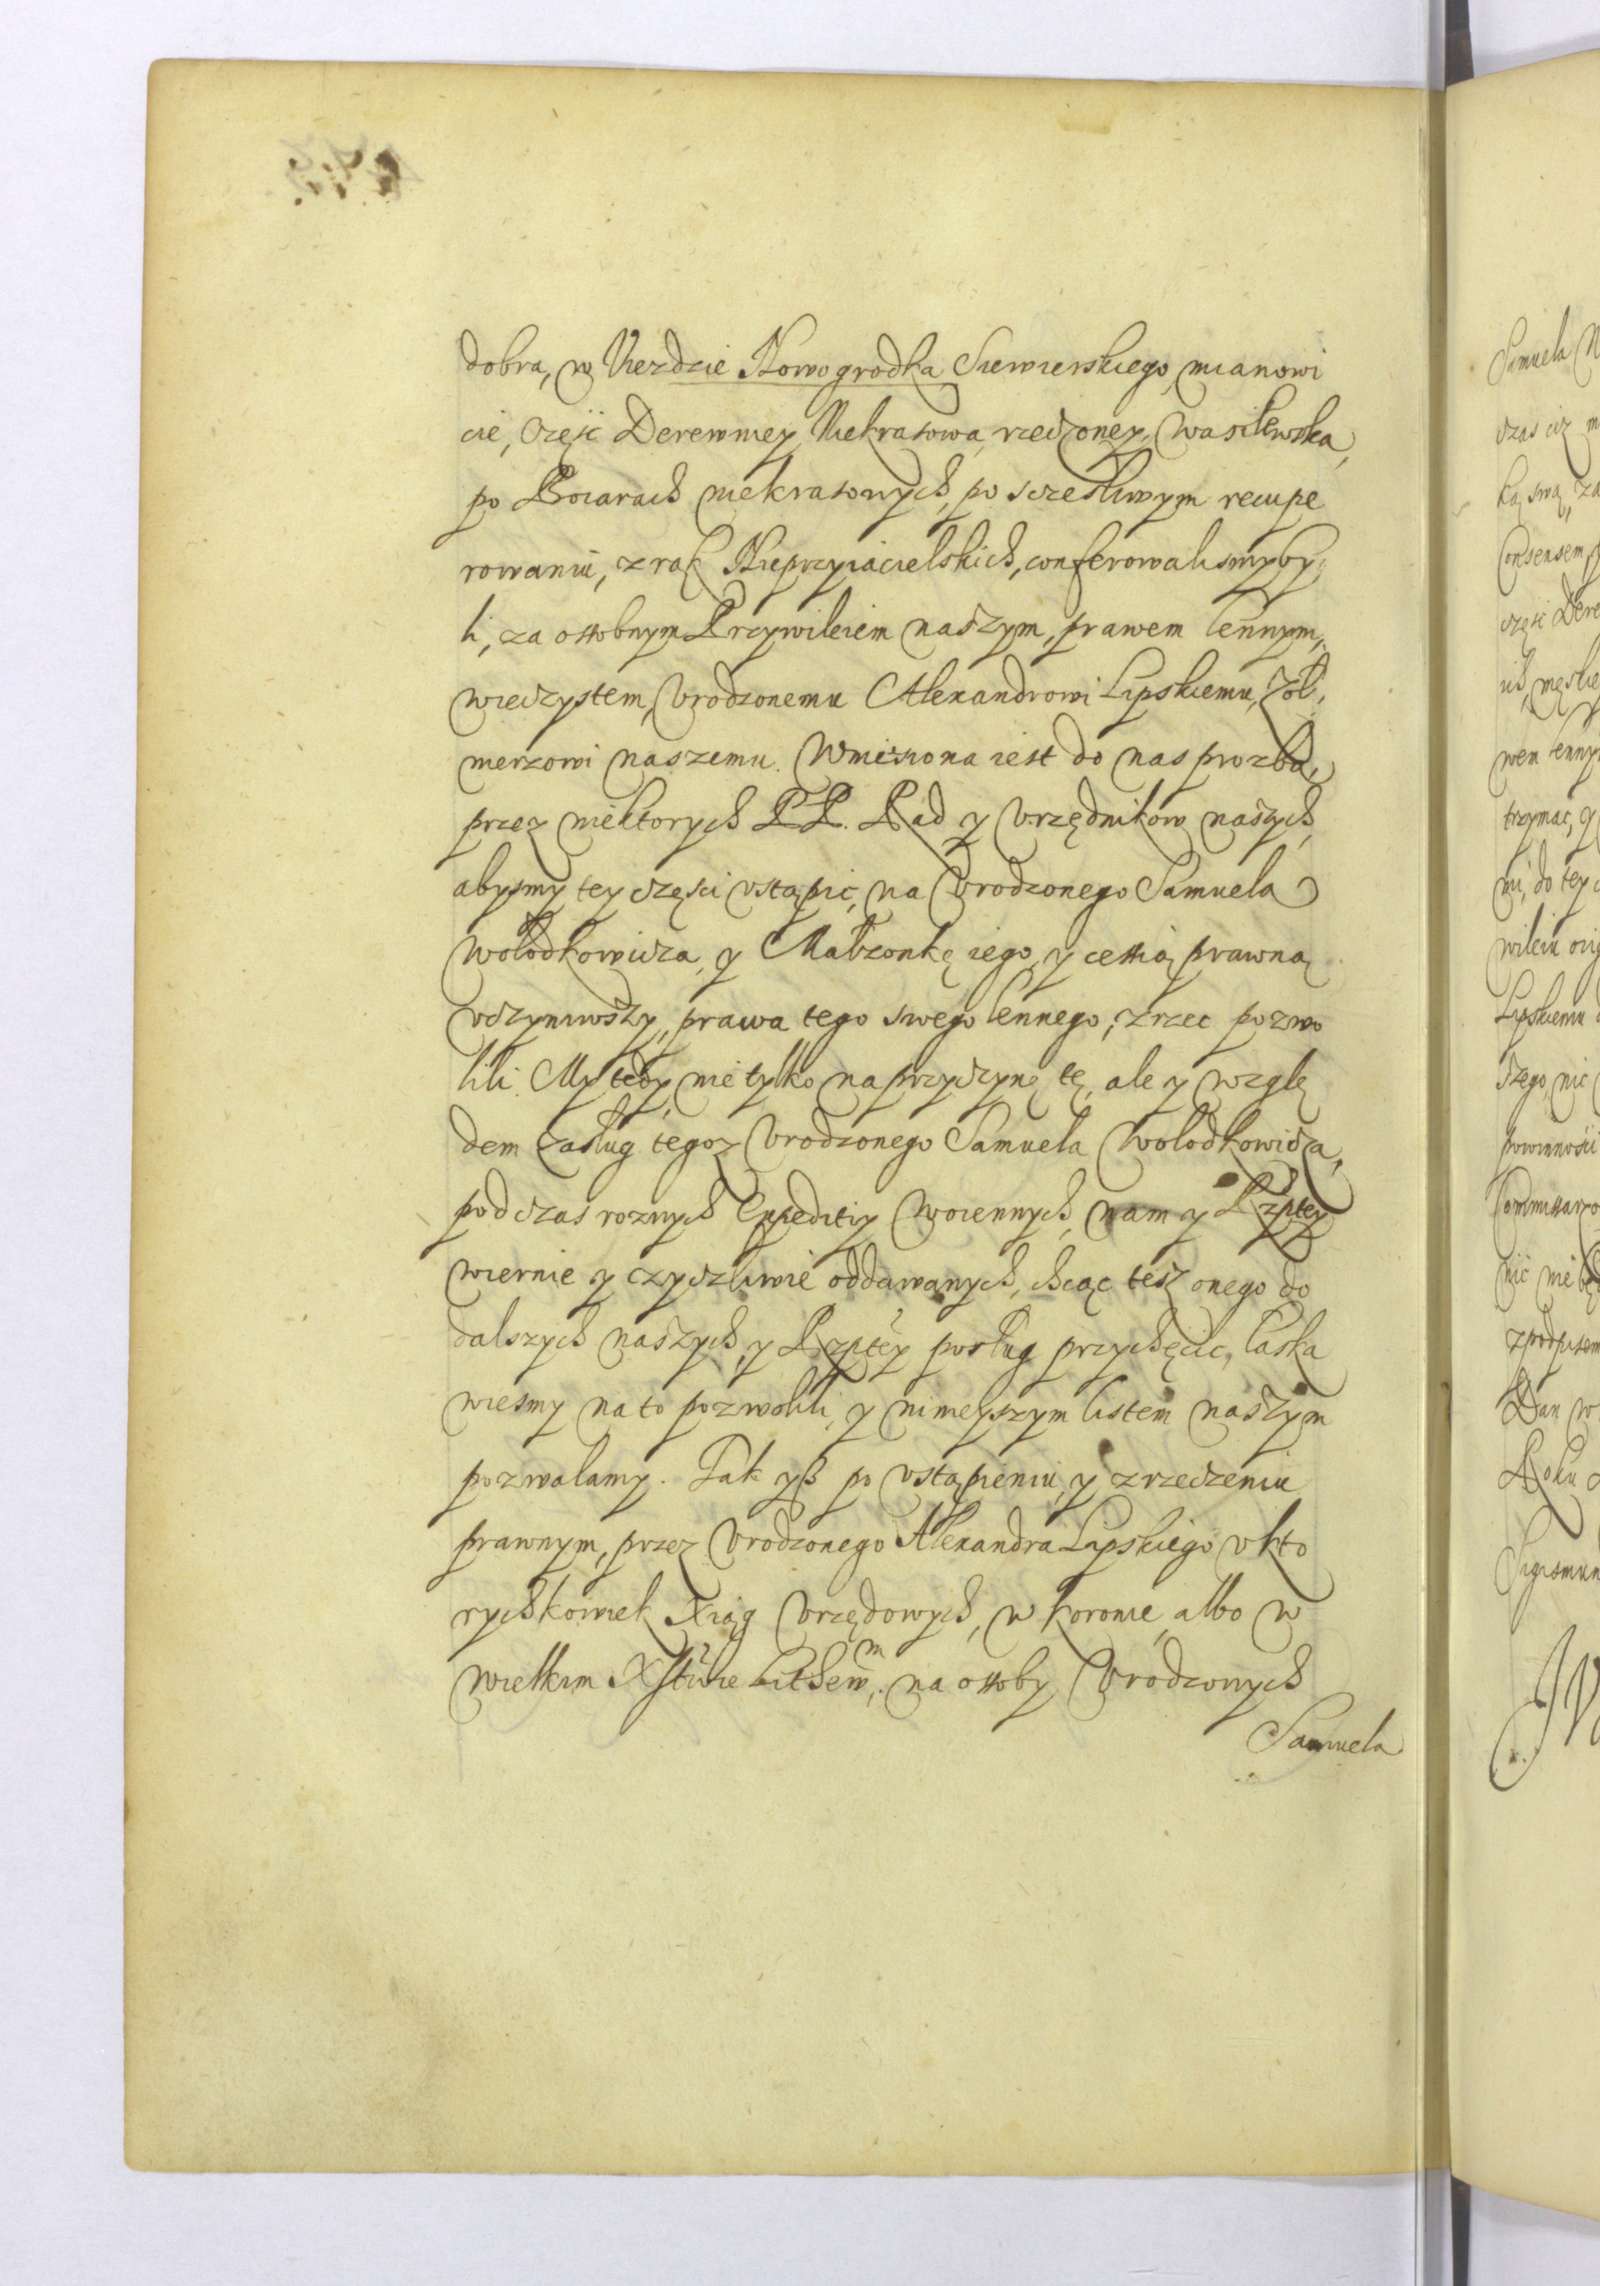 dobra, w Uiezdzie Nowogrodka Siewierskiego mianowi
cie, część Derewniey Niekrasowa rzeczoney Wasilewska,
po Boiarach niekrasowych, po sczesliwym recupe
rowaniu, z rąk Nieprzyiacielskich, conferowalismy by
li, za ossobnym Przywileiem naszym, prawem lennym,
wieczystem, Urodzonemu Alexandrowi Lipskiemu, Zoł,
nierzowi naszemu. Wniesiona iest do nas prozba,
przez niektorych PP. Rad y Urzędnikow naszych,
abysmy tey części ustąpić, na Urodzonego Samuela
Wołodkowicza, y Małzonkę iego, y cessią prawną
uczyniwszy, prawa tego swego lennego, zrzec pozwo
lili. My tedy, nie tylko na przyczynę tę, ale y wzglę
dem zasług tegoz Urodzonego Samuela Wołodkowicza,
pod czas roznych Expeditiy Woiennych, nam y Rzptey
wiernie y zyczliwie oddawanych, chcąc tesz onego do
dalszych naszych, y Rzptey posług przychęcić, łaska
wiesmy na to pozwolili, y ninieyszym listem naszym
pozwalamy. Tak yß po ustąpieniu, y zrzeczeniu
prawnym, przez Urodzonego Alexandra Lipskiego u kto
rychkowiek Xiąg Urzędowych, w Koronie, albo w
Wielkim Xstwie LitHewm, na ossoby Urodzonych
Samuela
Samuela
czas ciz
ką swą, za
Consensem
część Dere
ich, męskie
wem lenny
trzymac, y
mi, do tey
wileiu ori
Lipskiemu
szego, nic
powinności
Commissarzo
nic nie bę
z podpisem
Dan w
Roku
Sigismun